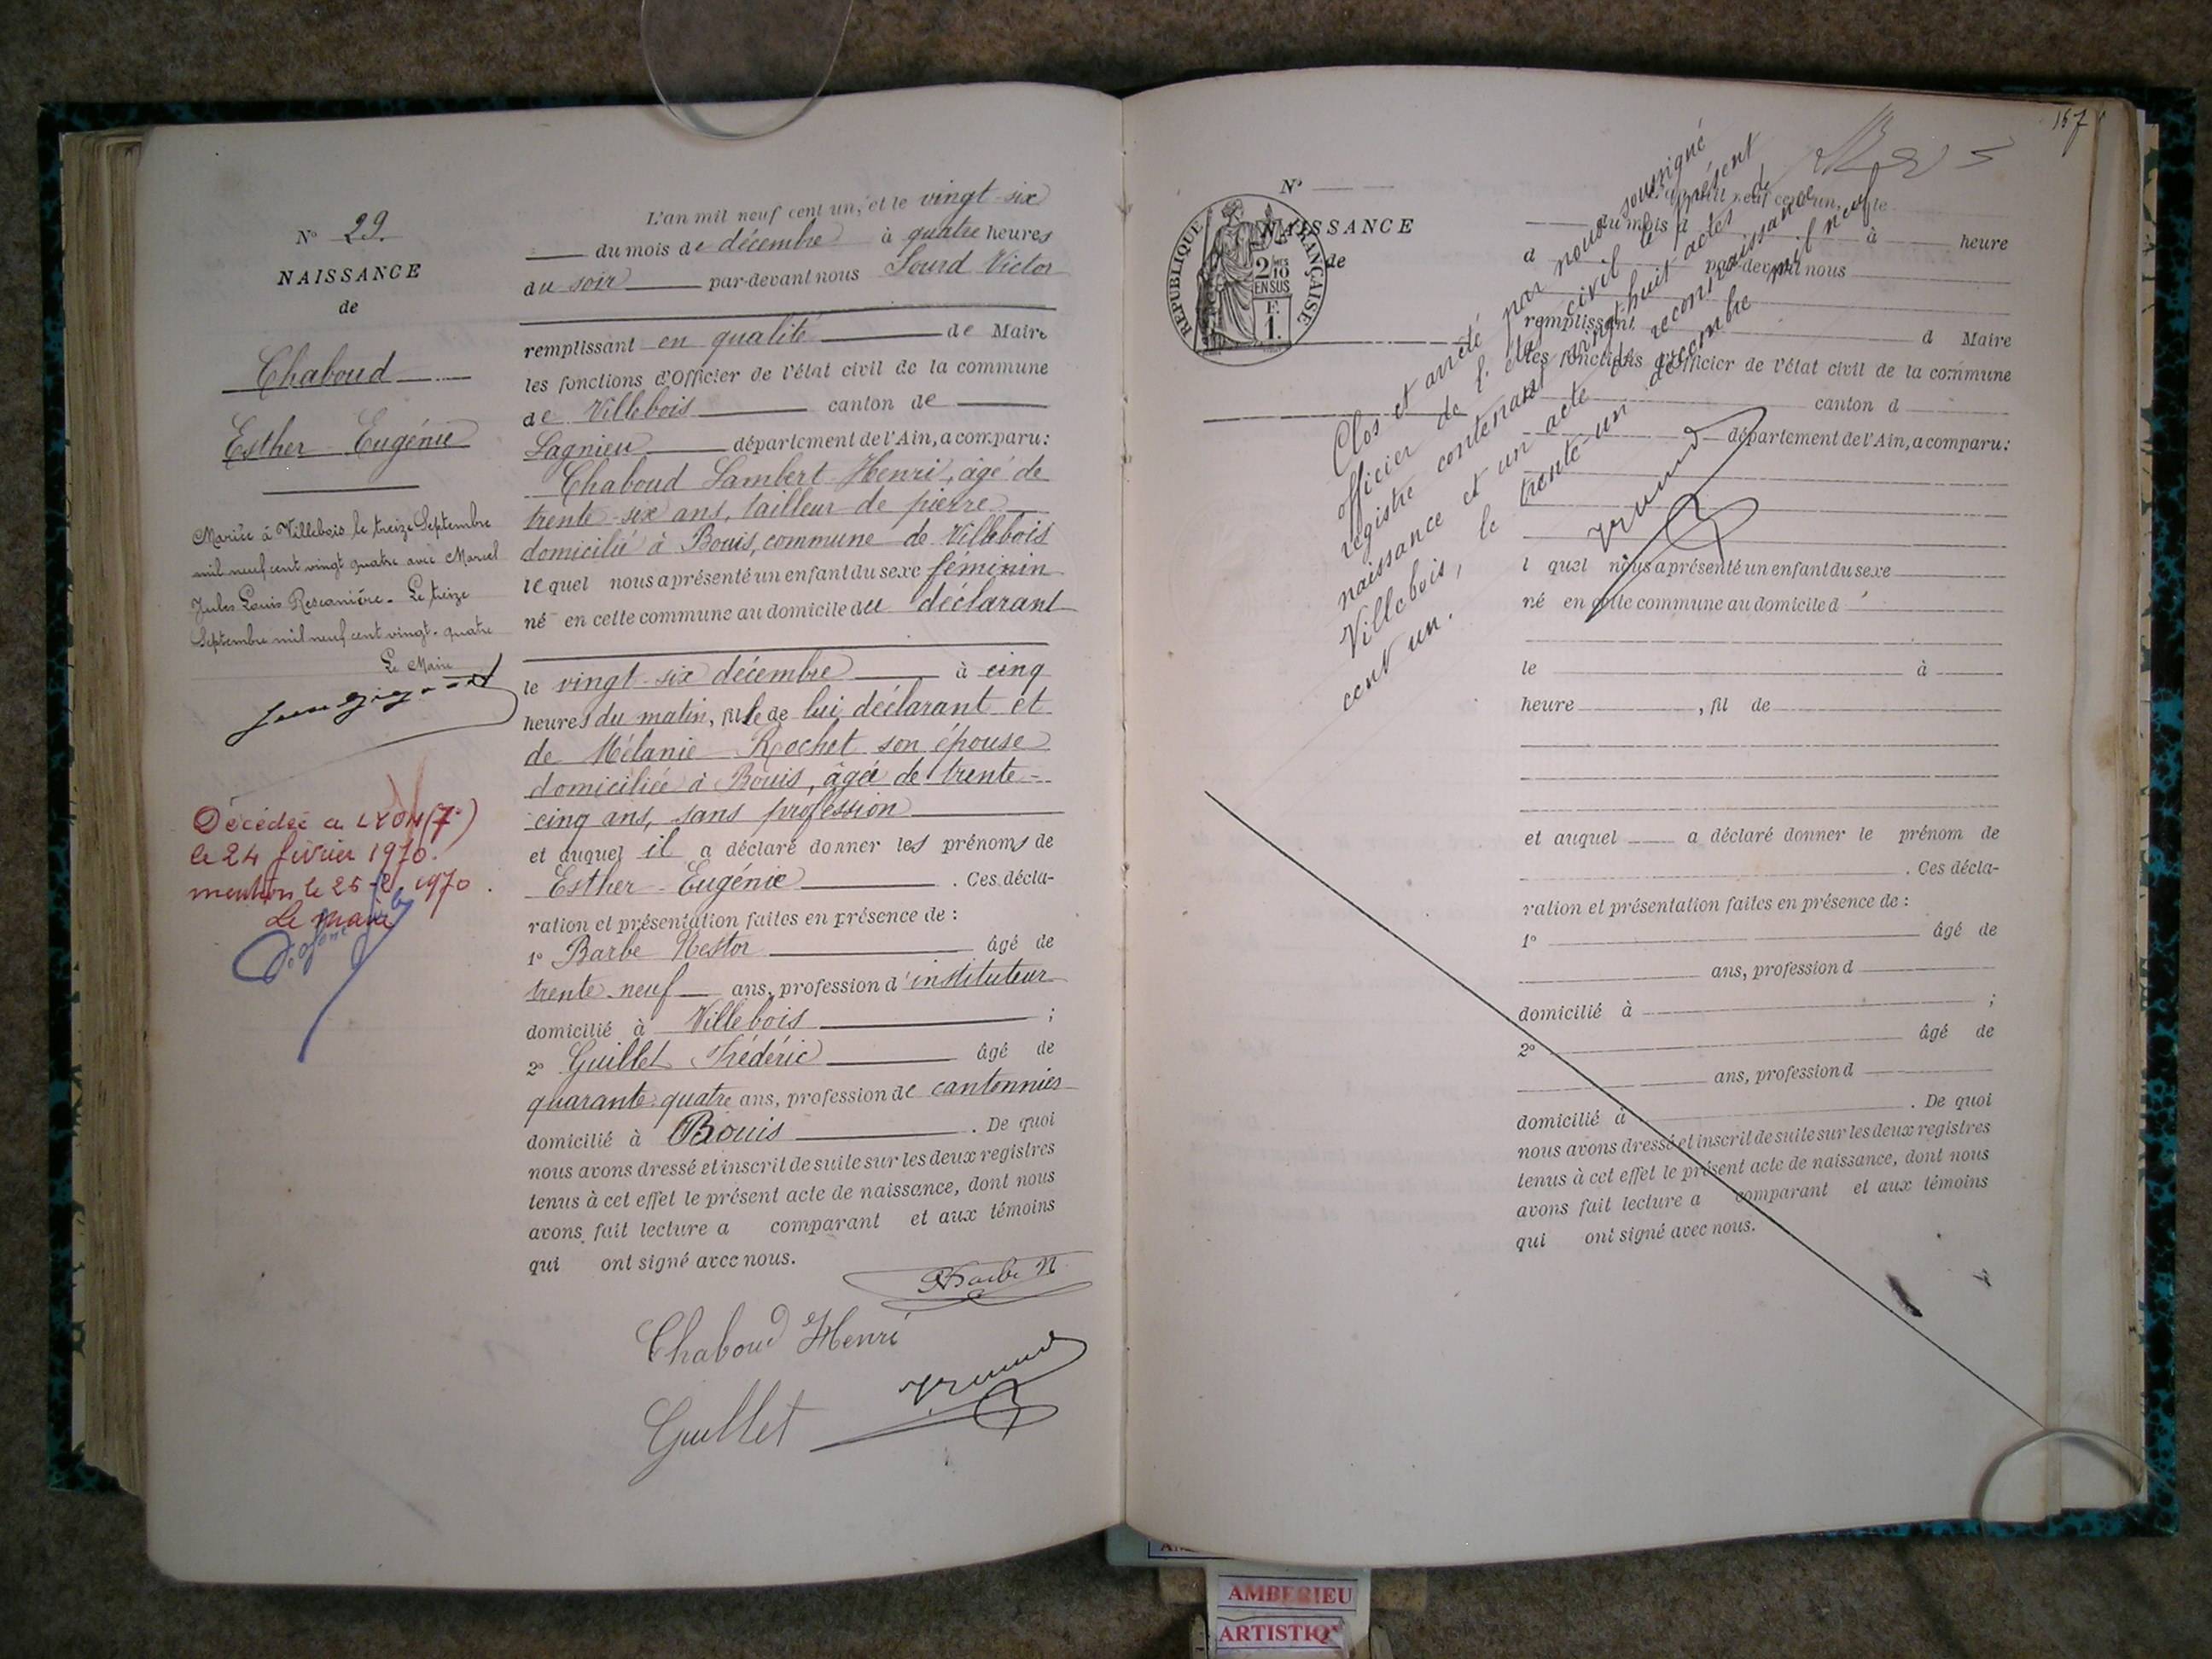 N° 29.
NAISSANCE
de
Chaboud
Esther Eugénie
Mariée à Villebois le treize Septembre
mil neuf cent vingt quatre avec Marcel
Jules Louis Rescanière. Le treize
Septembre mil neuf cent vingt-quatre
Le Maire
Décédée a LYON (7e)
le 24 février 1970.
mention le 25-2 1970.
Le maire
L'an mil neuf cent un, et le vingt-six
du mois de décembre à quatre heures
du soir par-devant nous Sourd Victor
remplissant en qualité de Maire
les fonctions d'Officier de l'état civil de la commune
de Villebois canton de
Lagnieu département de l'Ain, a comparu:
Chaboud Lambert Henri, âgé de
trente-six ans, tailleur de pierre
domicilié à Bouis, commune de Villebois
lequel nous a présenté un enfant du sexe féminin
né en cette commune au domicile du déclarant
le vingt-six décembre à cinq
heures du matin, fille de lui déclarant et
de Mélanie Rochet son épouse
domiciliée à Bouis, âgée de trente-
cinq ans, sans profession
et auquel il a déclaré donner les prénoms de
Esther Eugénie . Ces décla-
ration et présentation faites en présence de :
1° Barbe Nestor âgé de
trente-neuf ans, profession d'instituteur
domicilié à Villebois ;
2° Guillet Frédéric âgé de
quarante-quatre ans, profession de cantonnier
domicilié à Bouis . De quoi
nous avons dressé et inscrit de suite sur les deux registres
tenus à cet effet le présent acte de naissance, dont nous
avons fait lecture a comparant et aux témoins
qui ont signé avec nous.
Barbe N
Chaboud Henri
Guillet
157
N°
NAISSANCE
de
REPUBLIQUE FRANÇAISE
2/10 MES
EN SUS
F.
1.
Clos et arrêté par nous soussigné
officier de l'état civil le présent
registre contenant vingt-huit actes de
naissance et un acte de reconnaissance
Villebois, le trente-un décembre mil neuf
cent un.
à heure
d par-devant nous
remplissant d Maire
les fonctions d'Officier de l'état civil de la commune
canton d
département de l'Ain, a comparu:
l quel nous a présenté un enfant du sexe
né en cette commune au domicile d
le à
heure , fil de
et auquel a déclaré donner le prénom de
. Ces décla-
ration et présentation faites en présence de :
1° âgé de
ans, profession d
domicilié à ;
2° âgé de
ans, profession d
domicilié à . De quoi
nous avons dressé et inscrit de suite sur les deux registres
tenus à cet effet le présent acte de naissance, dont nous
avons fait lecture a comparant et aux témoins
qui ont signé avec nous.
AMBERIEU
ARTISTIQ